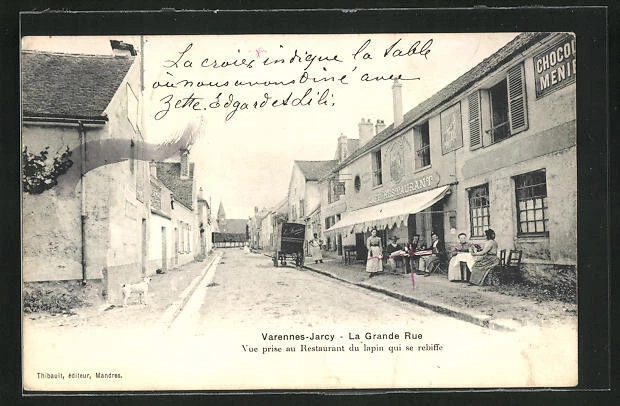 La croix indique la table
où nous avons diné avec
Zette. Edgard et Lili,
CHOCO
MENIE
CAFÉ RESTAURANT
Varennes-Jarcy - La Grande Rue
Vue prise au Restaurant du lapin qui se rebiffe
Thibault, éditeur, Mandres.